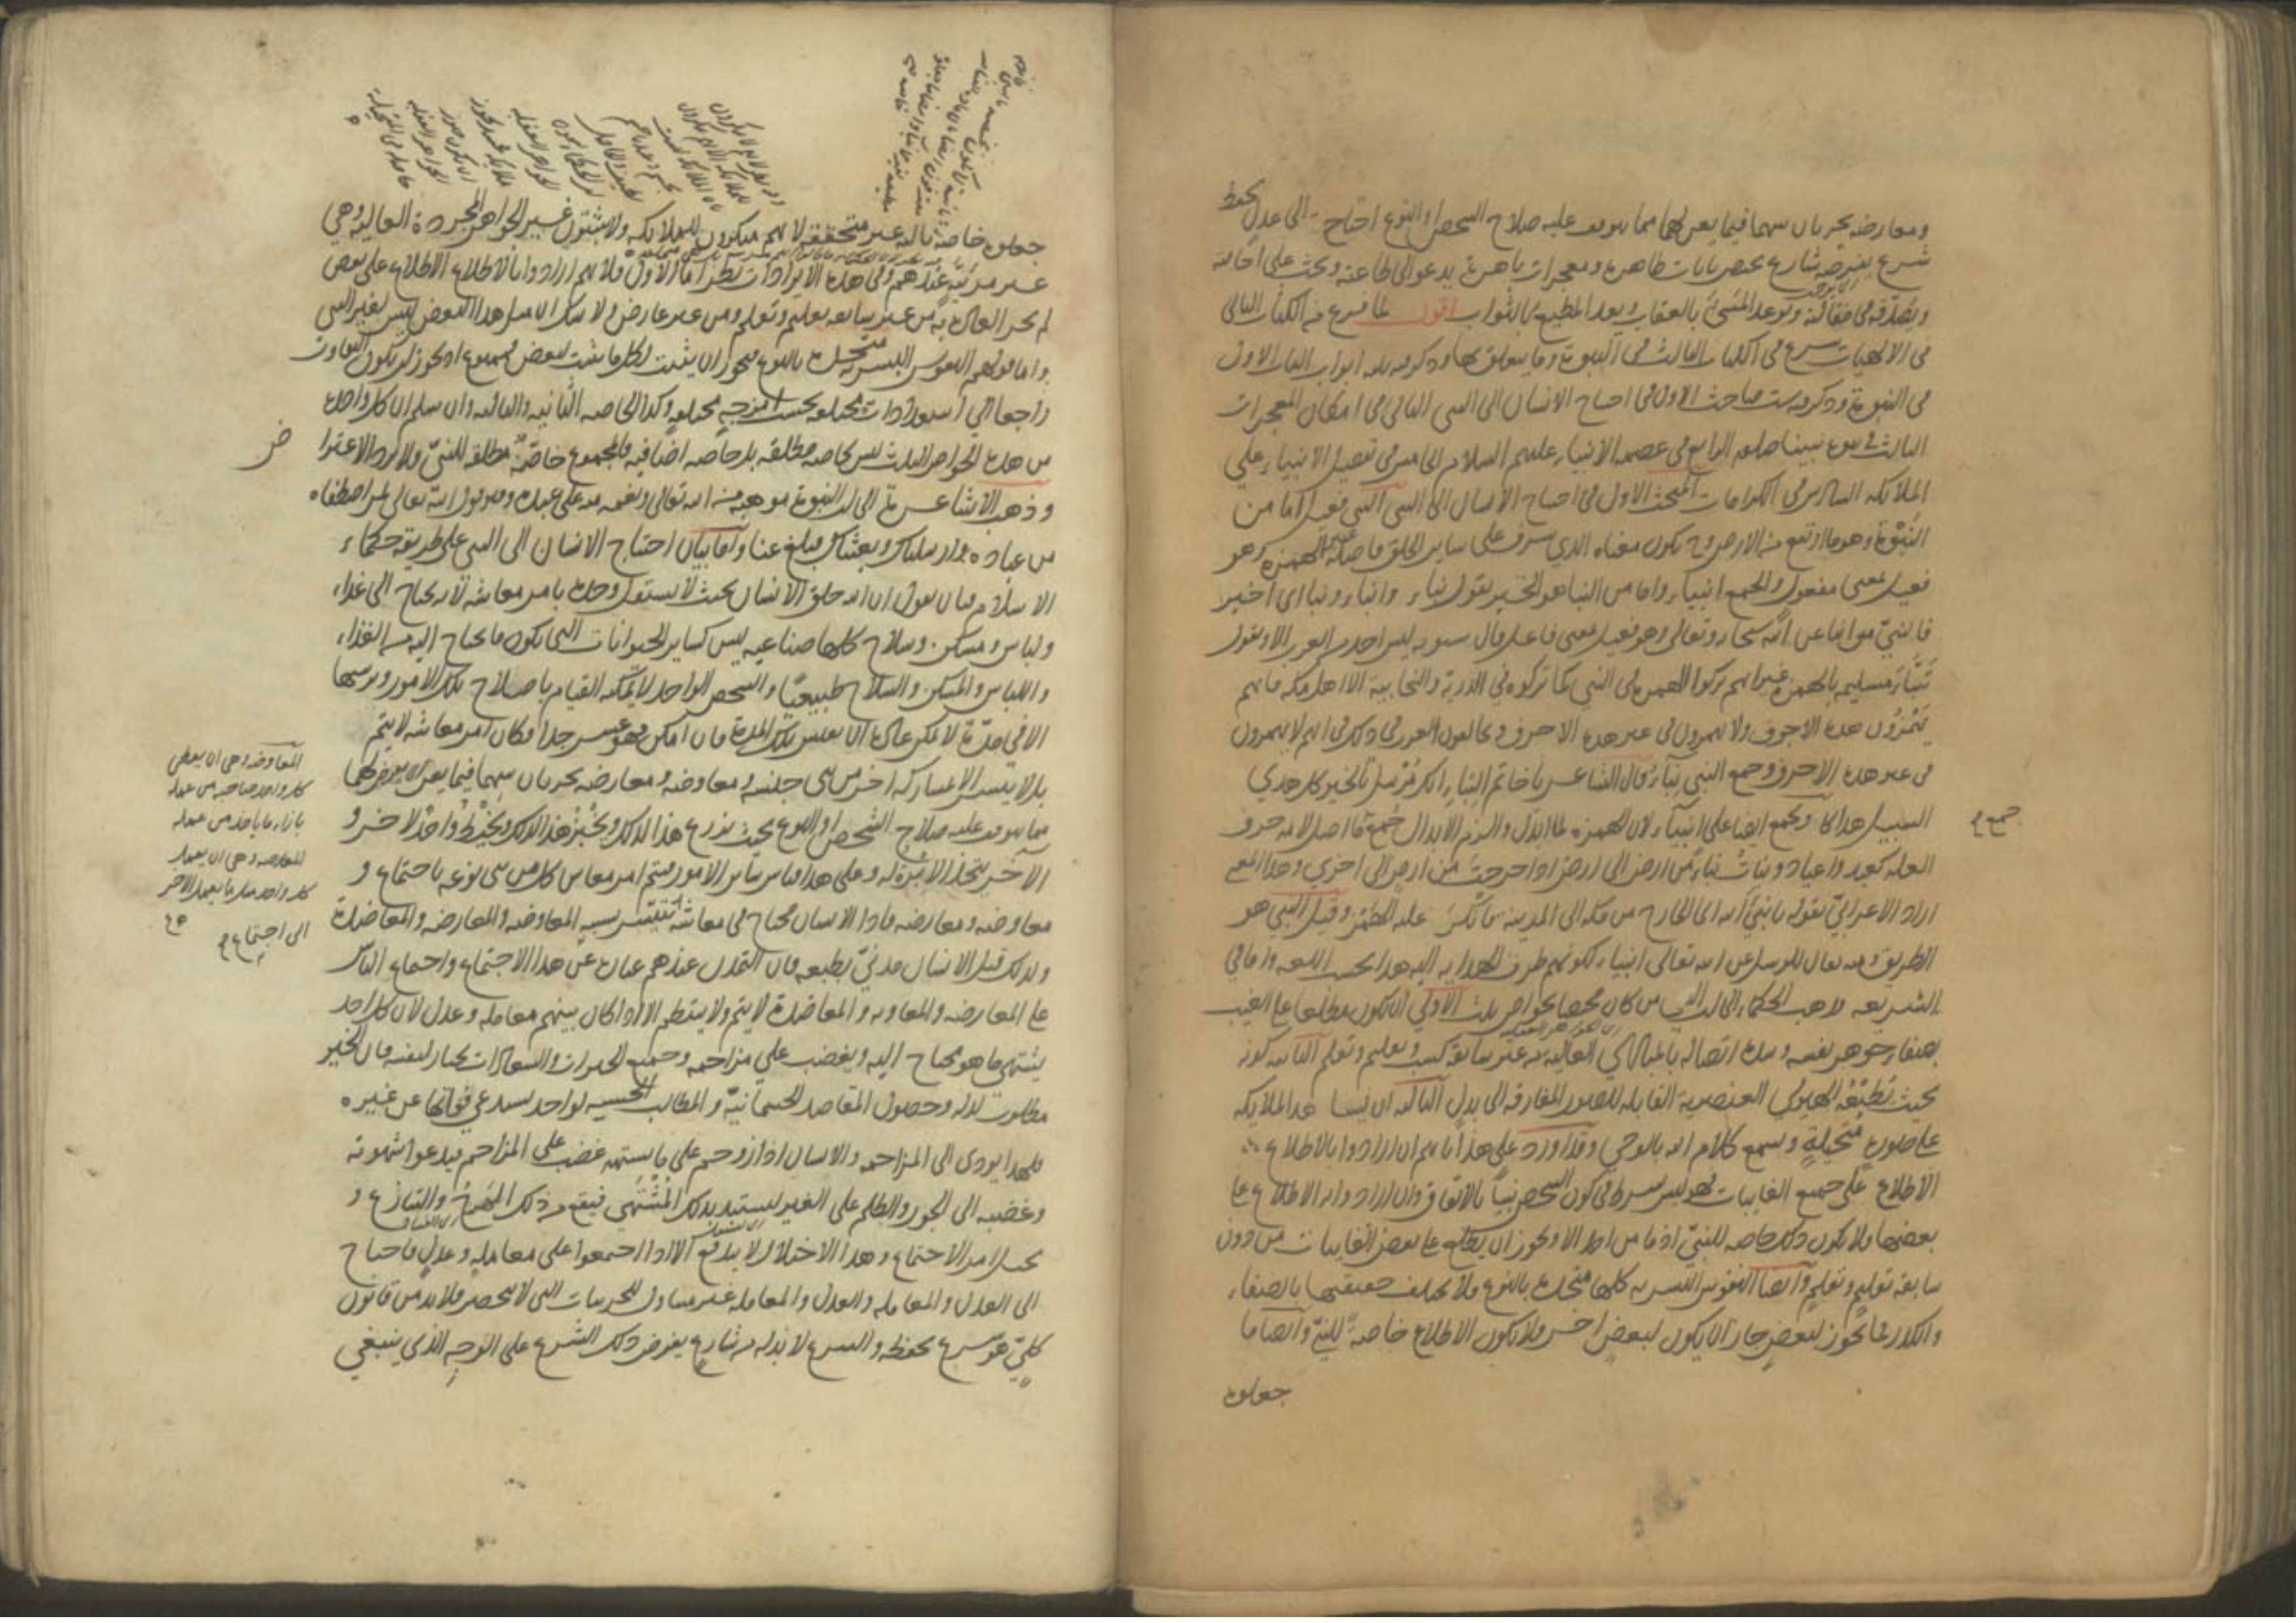 ومعارضة يجريان بينهما فيما يعن لهما مما يتوقف عليه صلاح الشخص او النوع احتاج الى عدل يحفظه
شرع يفرضه شارع يختص بايات ظاهرة ومعجزات باهرة يدعو الى طاعته ويحث على اجابته
ويصدقه في مقالته ويوعد المسيء بالعقاب ويعد المطيع بالثواب اقول لما فرغ من الكتاب الثاني
في الالهيات شرع في الكتاب الثالث في النبوة وما يتعلق بها وذكر فيه ثلثة ابواب الباب الاول
في النبوة وذكر فيه ستة مباحث الاول في احتياج الانسان الى النبي الثاني في امكان المعجزات
الثالث في نبوة نبينا صلعم الرابع في عصمة الانبياء عليهم السلام الخامس في تفضيل الانبياء على
الملائكة السادس في الكرامات المبحث الاول في احتياج الانسان الى النبي النبي فعيل اما من
النبوة وهو ما ارتفع من الارض وح يكون معناه الذي شرف على ساير الخلق فاصله غير الهمزة وهو
فعيل بمعنى مفعول والجمع انبياء واما من النبا هو الخبر يقول نباء وانباء ونبا اى اخبر
فالنبي من انبا عن الله سبحانه وتعالى وهو فعيل بمعنى فاعل قال سيبويه ليس احد من العرب الا ويقول
تنبأ مسيلمة بالهمزة غير انهم تركوا الهمزة في النبي كما تركوه في الذرية والخابية الا اهل مكة فانهم
يهمزون هذه الاحرف ولا يهمزون في غير هذه الاحرف ويخالفون العرب في ذلك في انهم لا يهمزون
في غير هذه الاحرف وجمع النبي نبآء قال الشاعر يا خاتم النباء انك مرسل بالخير كل هدي
السبيل هداكا ويجمع ايضا على انبياء لان الهمزة لما ابدل والزم الابدال جمع ما اصل لامه حرف
العلة كعيد واعياد ونبات نباء من ارض الى ارض اذا خرجت من ارض الى اخرى وهذا المعنى
اراد الاعرابي بقوله يا نبيء الله اى الخارج من مكة الى المدينة فانكر عليه الهمز وقيل النبي هو
الطريق ومنه يقال للرسل عن الله تعالى انبياء لكونهم طرق الهداية اليه هذا بحسب اللغة واما في
الشريعة ذهب الحكماء الى ان النبي من كان مختصا بخواص ثلث الاولى ان يكون مطلعا على الغيب
بصفاء جوهر نفسه وشدة اتصاله بالمبادي العالية من غير سابقة كسب وتعليم وتعلم الثانية كونه
بحيث تطيعه الهيولي العنصرية القابلة للصور المفارقة الى بدل الثالثة ان يشاهد الملائكة
على صورة متخيلة ويسمع كلام الله بالوحي وقد اورد على هذا بانهم ان ارادوا بالاطلاع
الاطلاع على جميع الغايبات فهو ليس بشرط في كون الشخص نبيا بالاتفاق وان ارادوا به الاطلاع على
بعضها فلا يكون ذلك خاصة للنبي اذ ما من احد الا ويجوز ان يطلع على بعض الغايبات من دون
سابقة تعليم وتعلم وايضا النفوس البشرية كلها متحدة بالنوع فلا يختلف حقيقتها بالصفاء
والكدر فما يجوز لبعض جاز ان يكون لبعض اخر فلا يكون الاطلاع خاصة للنبي وايضا ما
جعلوه
جعلوه خاصة ثالثة غير متحققة لانهم منكرون للملائكة ولا يثبتون غير الجواهر المجردة العالية وهي
غير مرئية عندهم وفي هذه الايرادات نظر اما الاول فلانهم ارادوا بالاطلاع الاطلاع على بعض
لم يجر العادة به من غير سابقة تعليم وتعلم ومن غير عارض ولا شك ان مثل هذا البعض ليس لغير النبي
واما قولهم النفوس البشرية متحدة بالنوع فيجوز ان يثبت لكل ما يثبت لبعض فممنوع اذ يجوز ان يكون التفاوت
راجعا الى استعدادات مختلفة بحسب امزجة مختلفة وكذا الخاصة الثانية والثالثة وان سلم ان كل واحدة
من هذه الخواص الثلث ليس بخاصة مطلقة بل خاصة اضافية فالمجموع خاصة مطلقة للنبي ولا يرد الاعتراض
وذهب الاشاعرة الى ان النبوة موهبة من الله تعالى ونعمة منه على عبده وهو قول الله تعالى لمن اصطفاه
من عباده ارسلناك وبعثناك فبلغ عنا واما بيان احتياج الانسان الى النبي على طريقة حكماء
الاسلام فبان نقول ان الله خلق الانسان بحيث لا يستقل وحده بامر معاشه لانه يحتاج الى غذاء
ولباس ومسكن وسلاح كلها صناعية ليس كساير الحيوانات التي يكون ما يحتاج اليه من الغذاء
واللباس والمسكن والسلاح طبيعيا والشخص الواحد لا يمكنه القيام باصلاح تلك الامور وترتيبها
الا في مدة لا يمكن عادة ان يعيش تلك المدة فان امكن فهو عسير جدا فكان امر معاشه لا يتم
بل لا يتيسر الا بمشاركة اخر من بني جنسه ومعاوضة ومعارضة يجريان بينهما فيما يعن لهما
مما يتوقف عليه صلاح الشخص او النوع بحيث يزرع هذا لذلك ويخبز هذا لذلك ويخيط واحد لاخر و
الآخر يتخذ الابرة له وعلى هذا قياس ساير الامور فيتم امر معاش كل من بني نوعه باجتماع و
معاوضة ومعارضة فاذا الانسان محتاج في معاشه بسبب المعاوضة والمعارضة والمعاضدة
ولذلك قيل الانسان مدني بطبعه فان التمدن عندهم عبارة عن هذا الاجتماع واجتماع الناس
على المعارضة والمعاونة والمعاضدة لا يتم ولا ينتظم الا اذا كان بينهم معاملة وعدل لان كل احد
يشتهي ما هو محتاج اليه ويغضب على مزاحمه وجميع الخيرات والسعادات يختار لنفسه فان الخير
مطلوب لذاته وحصول المقاصد الجسمانية والمطالب الحسية لواحد يستدعي فواتها عن غيره
فلهذا يؤدى الى المزاحمة والانسان اذا زوحم على ما يشتهيه غضب على المزاحم فيدعوا شهوته
وغضبه الى الجور والظلم على الغير ليستبد بذلك المشتهى فيقع من ذلك الهرج والتنازع و
يختل امر الاجتماع وهذا الاختلال لا يندفع الا اذا اجتمعوا على معاملة وعدل فاحتاج
الى العدل والمعاملة والعدل والمعاملة غير متناول للجزئيات التي لا تنحصر فلا بد من قانون
كلي هو شرع يحفظه والشرع لا بد له من شارع يفرض ذلك الشرع على الوجه الذي ينبغي
المعاوضة وهى ان يعطى
كل واحد صاحبه من عمله
بازاء ما ياخذ من عمله
المعارضة وهى ان يعمل
كل واحد مثل ما يعمل الاخر
الى اجتماع